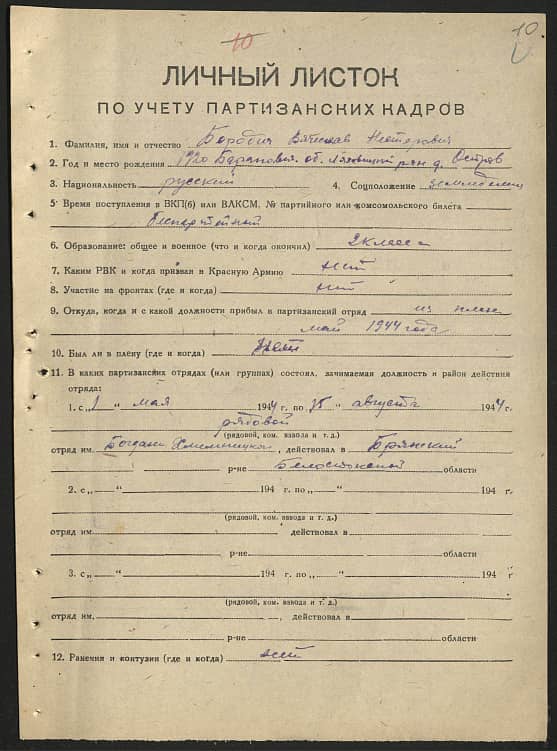 10
10
ЛИЧНЫЙ ЛИСТОК
ПО УЧЕТУ ПАРТИЗАНСКИХ КАДРОВ
1. Фамилия, имя и отчество Бородич Вячеслав Нестерович
2. Год и место рождения 1920 Баранович. об. Ляховицкий р-н д. Остров
3. Национальность русский 4. Соцположение
5. Время поступления в ВКП(б) или ВЛКСМ, № партийного или комсомольского билета
беспартейный
6. Образование: общее и военное (что и когда окончил) 2 класса
7. Каким РВК и когда призван в Красную Армию нет
8. Участие на фронтах (где и когда) нет
9. Откуда, когда и с какой должности прибыл в партизанский отряд из плена
май 1944 года
10. Был ли в плену (где и когда)
11. В каких партизанских отрядах (или группах) состоял, занимаемая должность и район действия
отряда:
1. с „1 “ мая 1944 г. по „15 “ августа 1944 г.
рядовой
(рядовой, ком. взвода и т. д.)
отряд им. Богдана Хмельницкого, действовал в Брянский
р-не Белостокской области
2. с „ “ 194 г. по „ “ 194 г.
(рядовой, ком. взвода и т. д.)
отряд им. действовал в
р-не области
3. с „ “ 194 г. по „ “ 194 г
(рядовой, ком. взвода и т. д.)
отряд им. , действовал в
р-не области
12. Ранения и контузии (где и когда) нет